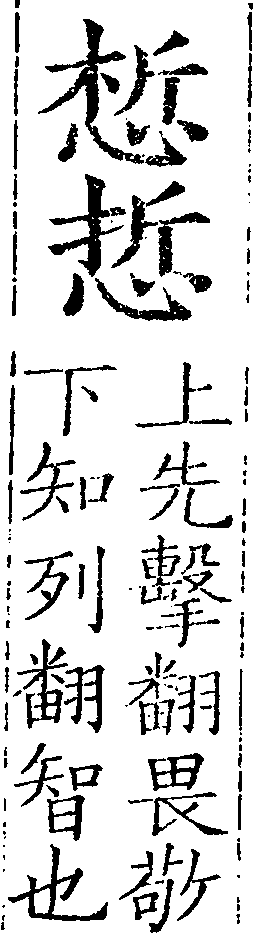 惁悊
上先擊翻畏敬
下知列翻智也